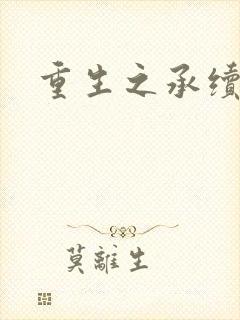 重生之承續
莫離生